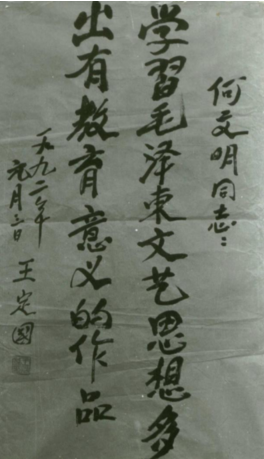 何文明同志：
学習毛泽東文艺思想多
出有教育意义的作品
一九九二年
元月三日
王定國